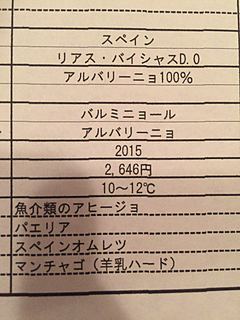 スペイン
リアス・バイシャスD.O
アルバリーニョ100%
バルミニョール
アルバリーニョ
2015
2,646円
10～12℃
魚介類のアヒージョ
パエリア
スペインオムレツ
マンチャゴ（羊乳ハード）